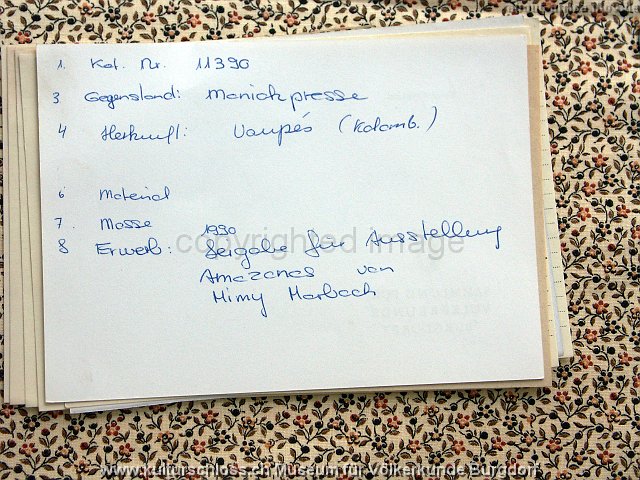 1. Kat. Nr. 11390
3 Gegenstand: Maniokpresse
4 Herkunft: Vaupés (Kolomb.)
6 Material
7. Masse
8 Erwerb: 1990
für Ausstellung
Amazonas von
Mimy Marbach
copyrighted image
www.kulturschloss.ch Museum für Völkerkunde Burgdorf